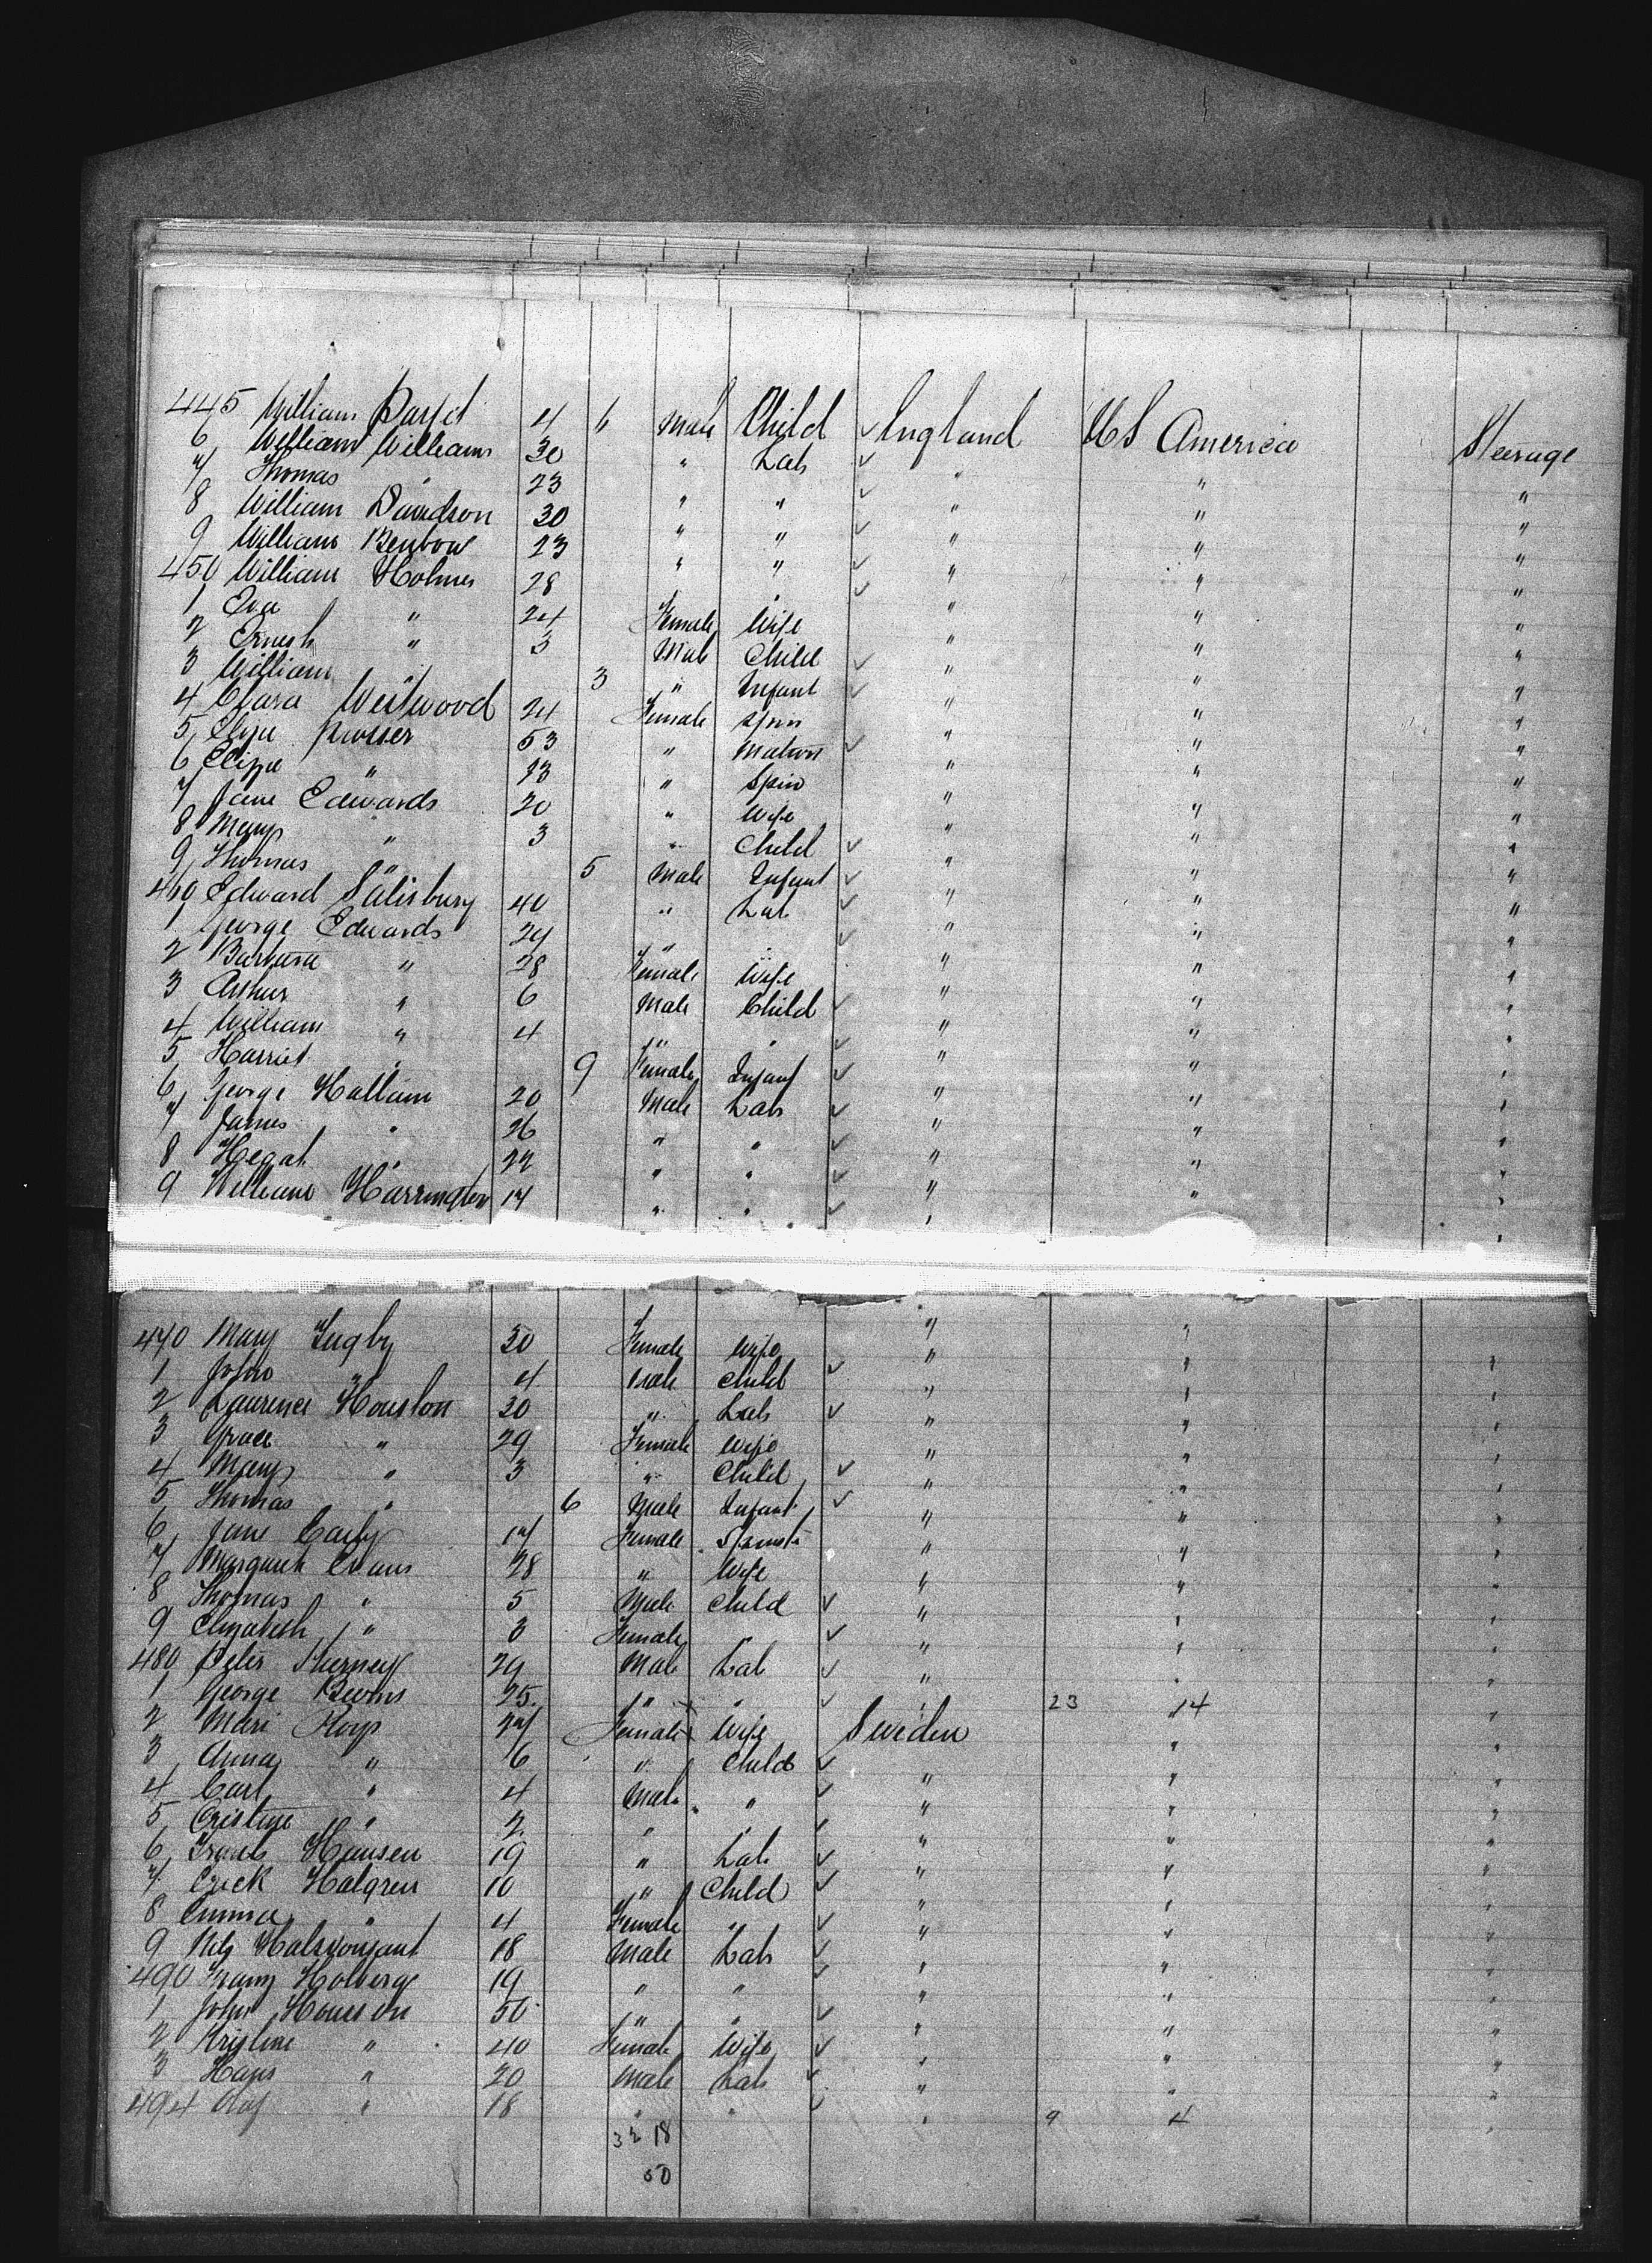 445 William 4 6 Male Child England US America Steerage
6 William Williams 30 " Lab " " "
7 Thomas " 23 " " " " "
8 William Davidson 30 " " " " "
9 William Benbow 23 " " " " "
450 William Holmes 28 " " " " "
1 Eva " 24 Female Wife " " "
2 Ernest " 3 Male Child " " "
3 William " 3 " Infant " " "
4 Clara Westwood 24 Female Spin " " "
5 Eliza Prosser 53 " Matron " " "
6 Eliza " 23 " Spin " " "
7 Jane Edwards 20 " Wife " " "
8 Mary " 3 " Child " " "
9 Thomas " 5 Male Infant " " "
460 Edward Salisbury 40 " Lab " " "
1 George Edwards 29 " " " " "
2 Barbara " 28 Female Wife " " "
3 Arthur " 6 Male Child " " "
4 William " 4 " " " " "
5 Harriet " 9 Female Infant " " "
6 George Hallam 20 Male Lab " " "
7 James " 26 " " " " "
8 " 22 " " " " "
9 William Harrington 17 " " " " "
470 Mary 30 Female Wife " " "
1 John " 4 Male Child " " "
2 Laurence Houston 30 " Lab " " "
3 Grace " 29 Female Wife " " "
4 Mary " 3 " Child " " "
5 Thomas " 6 Male Infant " " "
6 Jane 17 Female Spinst " " "
7 Margaret Evans 28 " Wife " " "
8 Thomas " 5 Male Child " " "
9 Elizabeth " 3 Female " " " "
480 Peter 29 Male Lab " " "
1 George 25 " " " 23 14 "
2 Mari 27 Female Wife Sweden " "
3 Anna " 6 " Child " " "
4 Carl " 4 Male " " " "
5 " 2 " " " " "
6 Hansen 19 " Lab " " "
7 Erick Halgren 10 " Child " " "
8 Emma " 4 Female " " " "
9 Nils 18 Male Lab " " "
490 Franz Holberg 19 " " " " "
1 John 50 " " " " "
2 Kristine " 40 Female Wife " " "
3 Hans " 20 Male Lab " " "
494 " 18 " " " 9 4 "
32 18
50